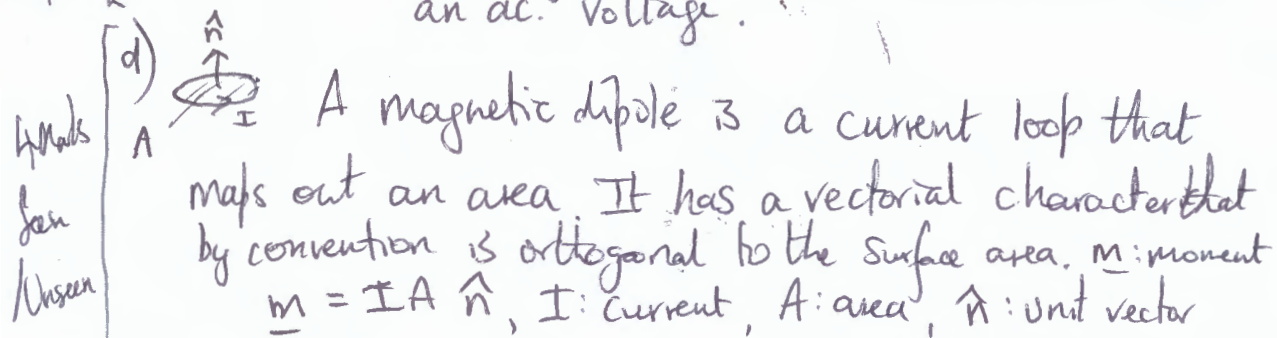 an ac. voltage.
d) n̂
I
A
A magnetic dipole is a current loop that
4 Marks
maps out an area. It has a vectorial character that
Seen
by convention is orttogonal to the surface area. m: moment
/Unseen
m = IA n̂, I: current, A: area, n̂: unit vector